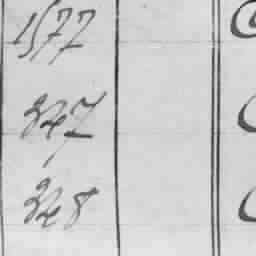 1577
347
348